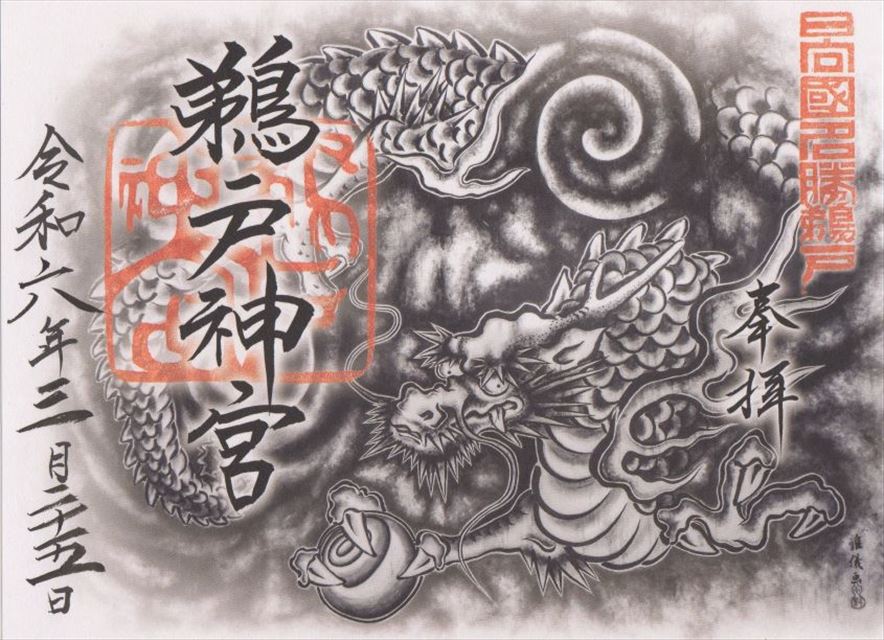 日向國名勝鵜戸
奉拝
鵜戸神宮
令和六年三月二十五日